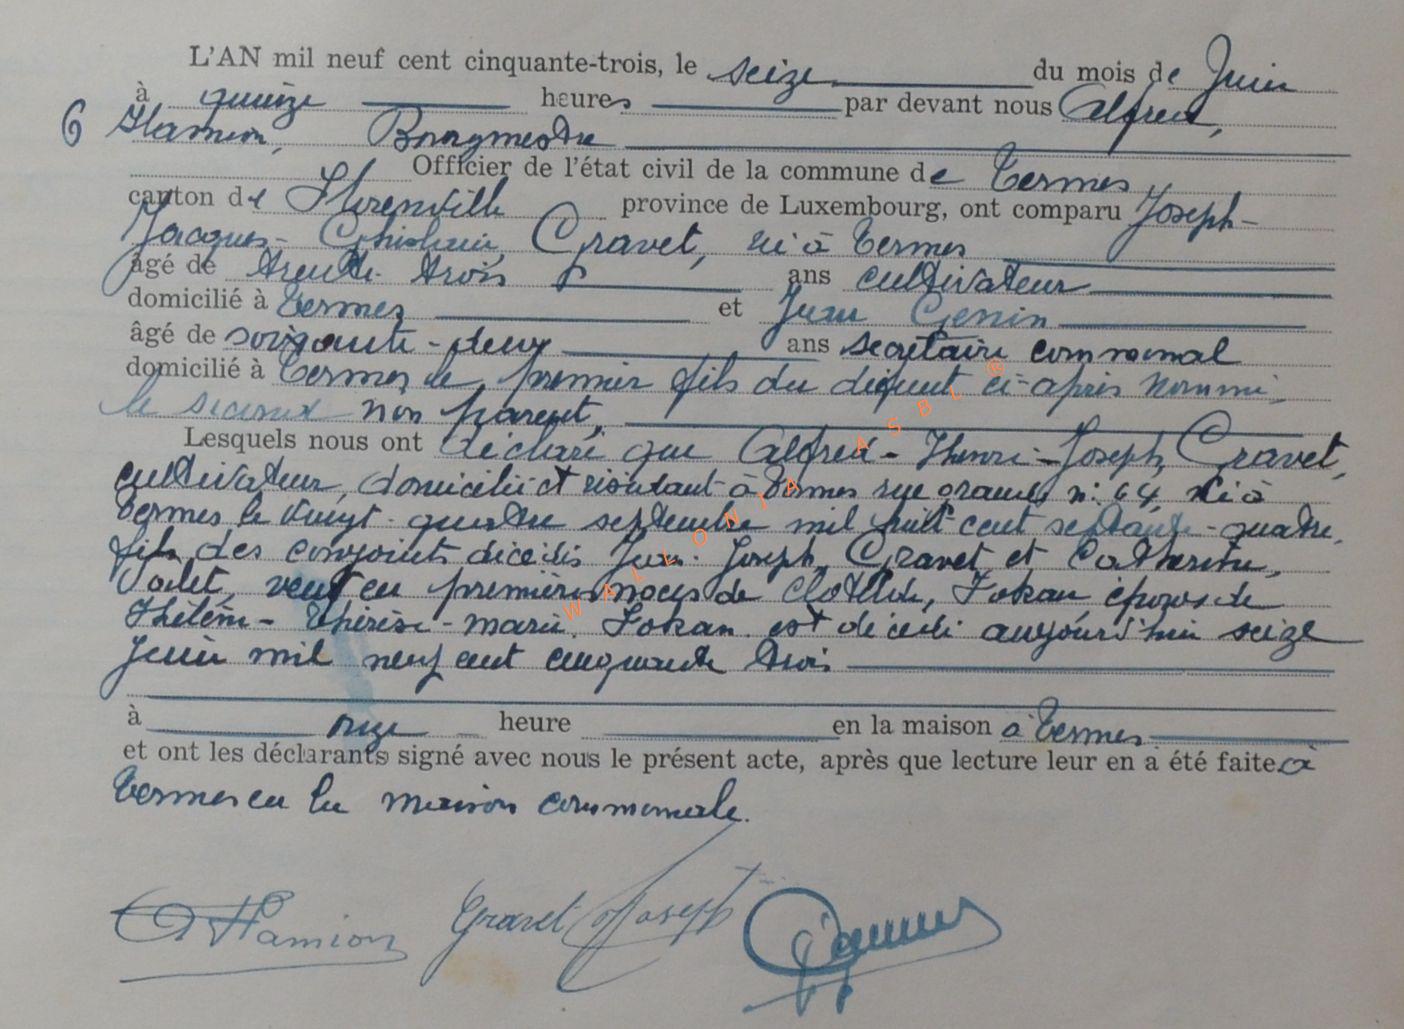 L'AN mil neuf cent cinquante-trois, le seize du mois de Juin
à quinze heures par devant nous Alfred,
6 Hamion, Bourgmestre
Officier de l'état civil de la commune de Termes,
canton de Florenville province de Luxembourg, ont comparu Joseph-
Jacques-Ghislain Gravet, né à Termes
âgé de trente-trois ans cultivateur
domicilié à Termes et Jean Genin
âgé de soixante-deux ans secrétaire communal
domicilié à Termes le premier fils du défunt ci-après nommé,
le second non parent,
Lesquels nous ont déclaré que Alfred-Henri-Joseph Gravet,
cultivateur, domicilié et résidant à Termes rue grande n: 64, né à
Termes le vingt-quatre septembre mil huit cent septante-quatre,
fils des conjoints décédés Jean-Joseph Gravet et Catherine
veuf en premières noces de Clotilde, Fokan, époux de
Hélène-Thérèse-Marie Fokan est décédé aujourd'hui seize
Juin mil neuf cent cinquante trois
à onze heure en la maison à Termes
et ont les déclarants signé avec nous le présent acte, après que lecture leur en a été faite à
Termes en la maison communale.
AHamion Gravet Joseph
WALLONIA ASBL ®